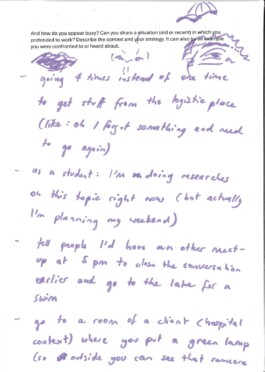 And how do you appear busy? Can you share a situation (old or recent) in which you
pretended to work? Describe the context and your strategy. It can also be an
you were confronted to or heard about.
- going 4 times instead of one time
to get stuff from the logistic place
(like: oh I forgot something and need
to go again)
- as a student: I'm doing researches
on this topic right now (but actually
I'm planning my weekend)
- tell people I'd have an other meet-
up at 5 pm to close the conversation
earlier and go to the lake for a
swim
- go to a room of a client (hospital
context) where you put a green lamp
(so outside you can see that someone